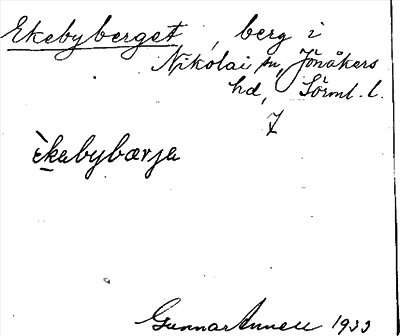 Ekebyberget, berg i
Nikolai sn, Jönåkers
hd, Sörml. l.
èkabybærja
Gunnar Annell 1933